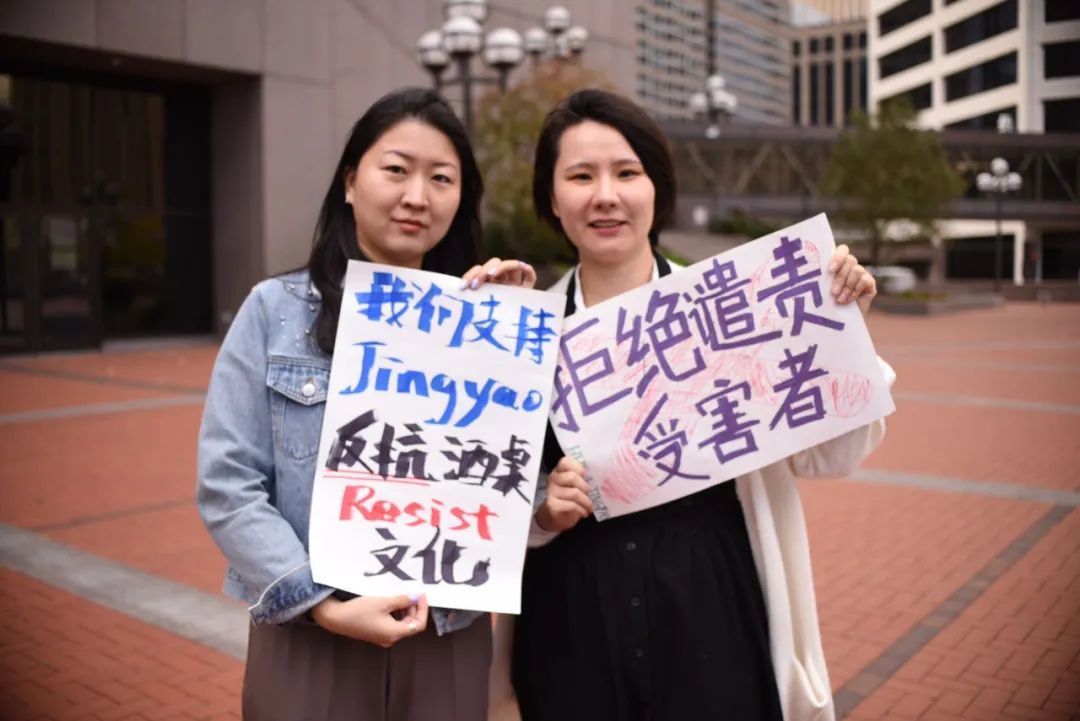 我们支持
Jingyao
反抗酒桌
Resist
文化
拒绝谴责
受害者